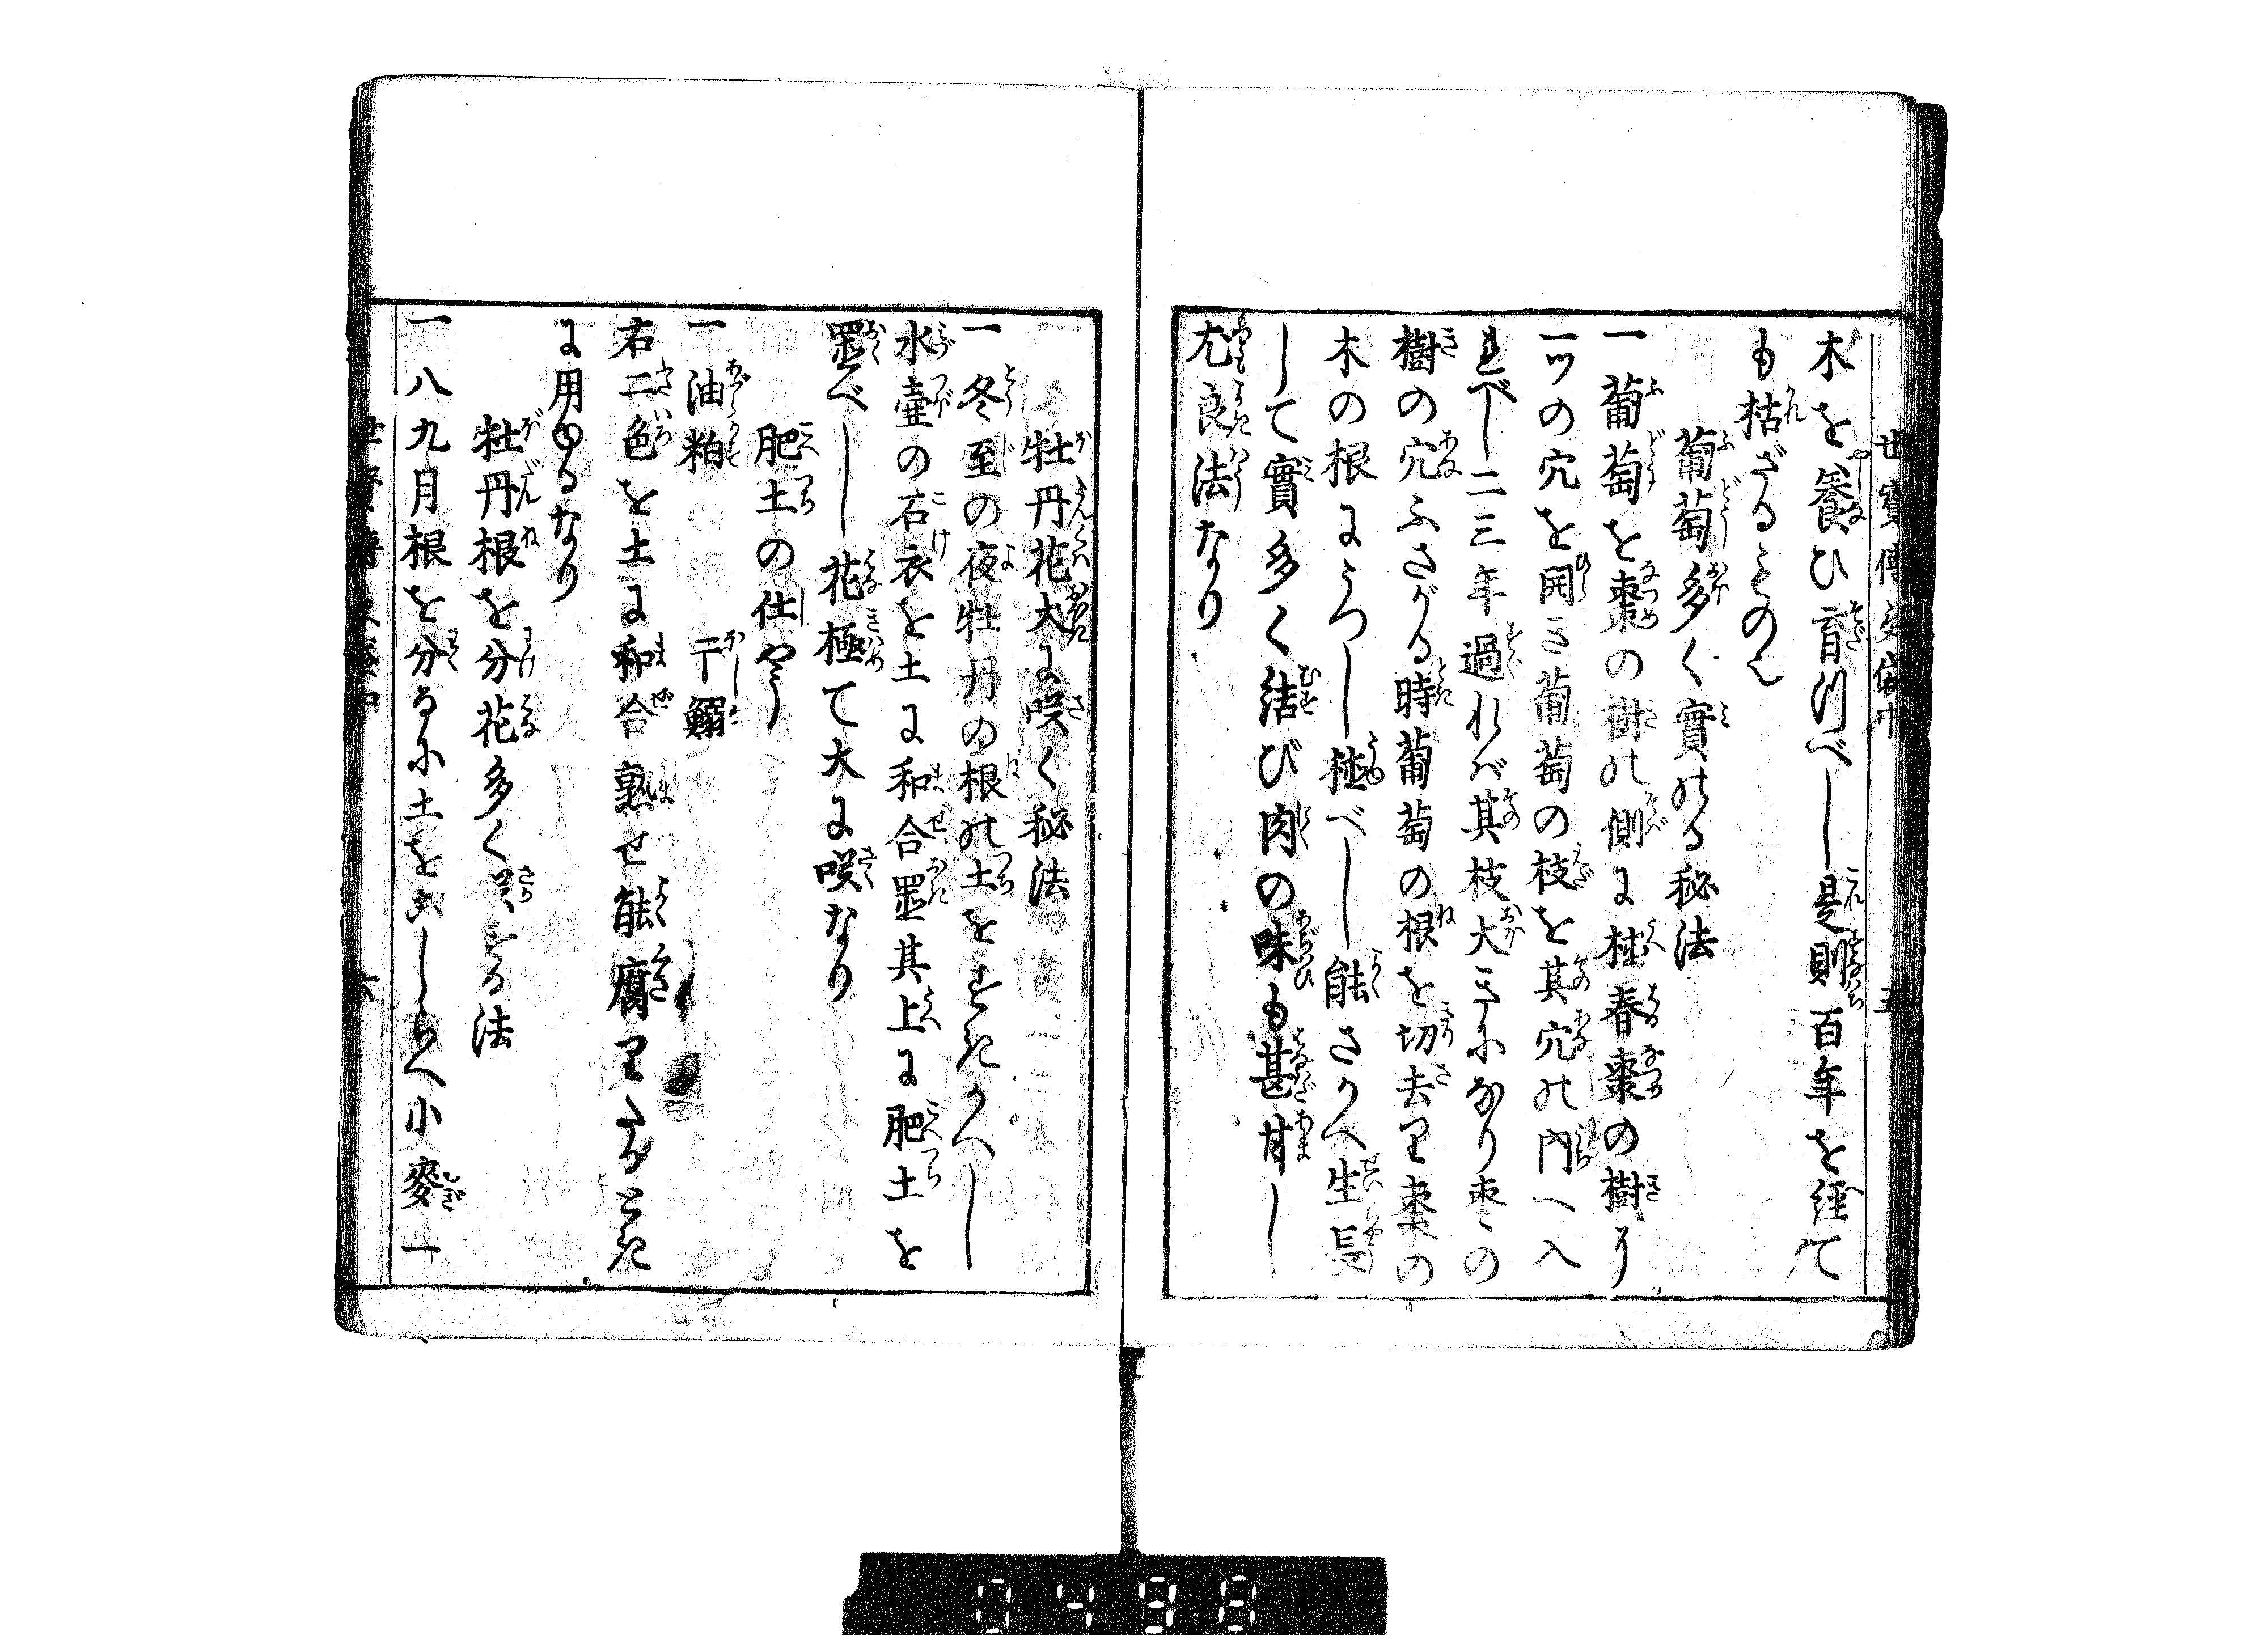 木を養ひ育つべし是則百年を経て
も枯ざるもの也
葡萄多く實のる秘法
一葡萄を棗の樹の側に植春棗の樹より
一ツの穴を開き葡萄の枝を其穴の内へ入
るべし二三年過れば其枝大きになり棗の
樹の穴ふさがる時葡萄の根を切去り棗の
木の根にうつし植べし能さかへ生長
して實多く結び肉の味も甚甘し
尤良法なり
牡丹花大に咲く秘法
一冬至の夜牡丹の根の土をすきかへし
水壺の石衣を土に和合置其上に肥土を
置べし花極て大に咲なり
肥土の仕やう
一油粕 干鰯
右二色を土に和合熟せ能腐りたるとき
に用ゆるなり
牡丹根を分花多く咲する法
一八九月根を分るに土をこしらへ小麥一
六
0498